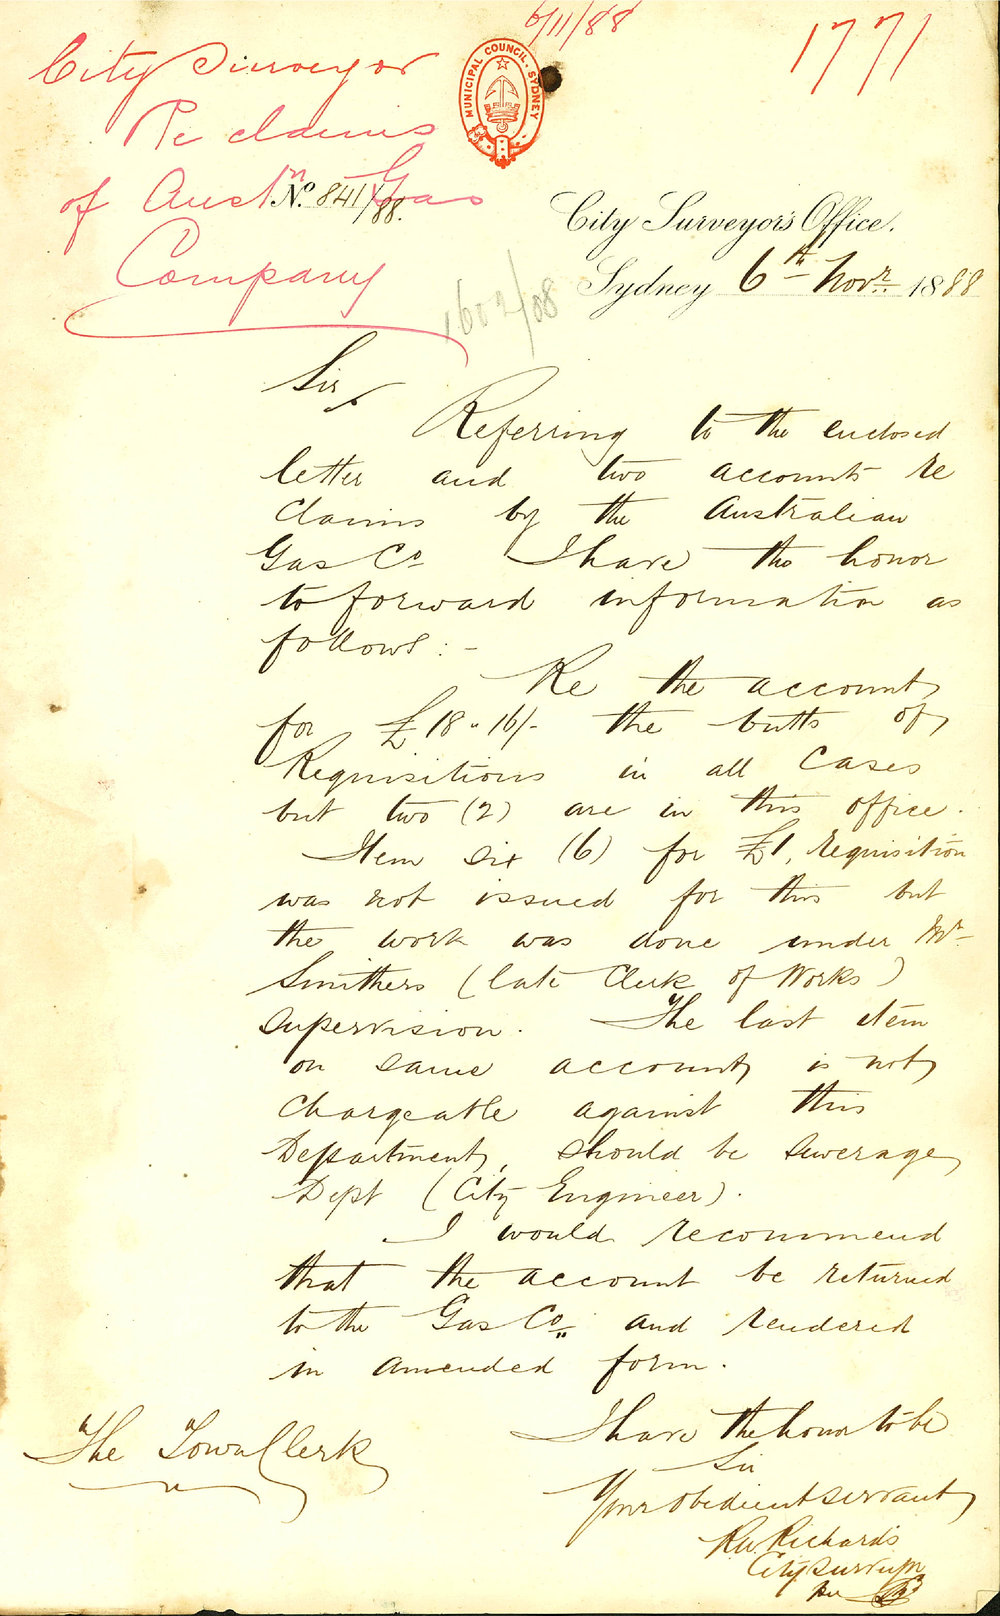 6/11/88
1771
City Surveyor
Re claims
of Austn Gas
Company
MUNICIPAL COUNCIL. SYDNEY
No. 841/88.
City Surveyor's Office.
Sydney 6th Novr. 1888
1602/08
Sir,
Referring to the enclosed
letter and two accounts re
claims by the Australian
Gas Co I have the honor
to forward information as
follows:-
Re the account
for £18-16/- the butts of
Requisitions in all cases
but two (2) are in this office.
Item six (6) for £1, requisition
was not issued for this but
the work was done under Mr
Smithers (late Clerk of Works)
supervision. The last item
on same account is not
chargeable against this
Department, should be Sewerage
Dept (City Engineer).
I would recommend
that the account be returned
to the Gas Co. and rendered
in amended form.
I have the honor to be
Sir
Your obedient servant
RW Richards
City Surveyor
per
The Town Clerk